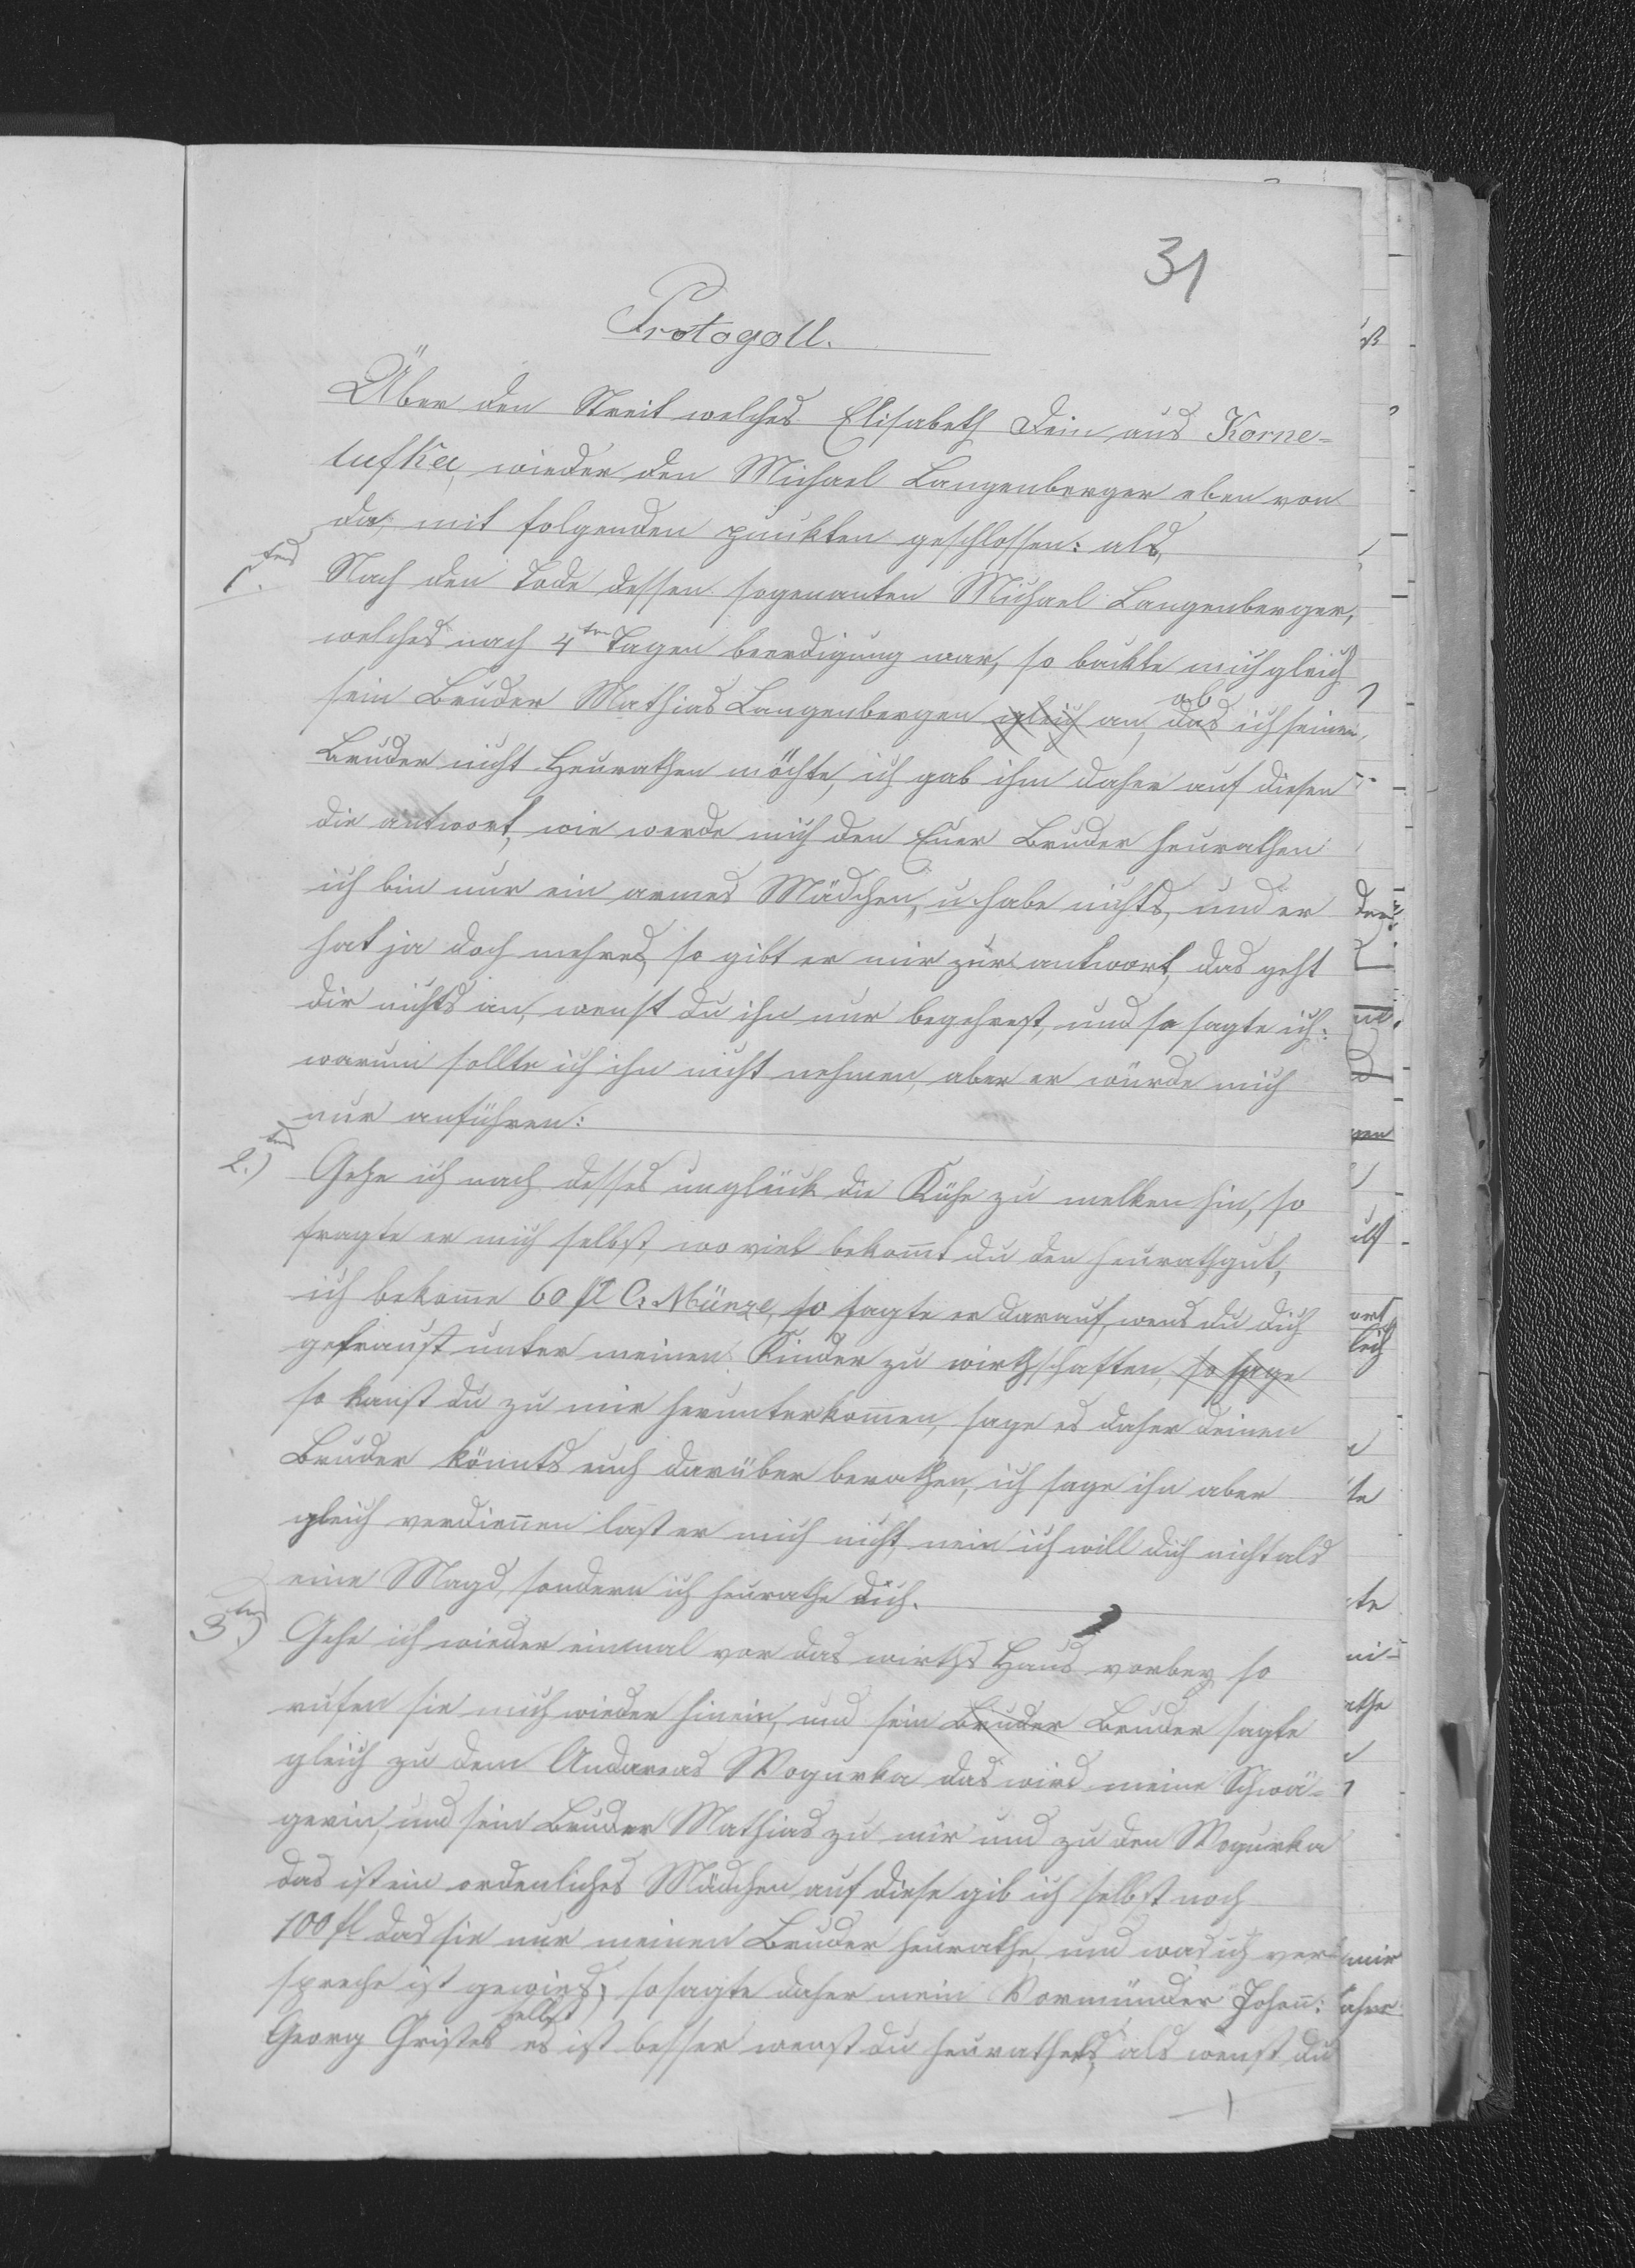 31
Protogoll.
Über den Streit welches Elisabeth Dein aus Korne-
lufka, wieder den Michael Langenberger eben von
da, mit folgenden punkten geschlossen: als,
1.tens Nach den Tode dessen sogenanten Michael Langenberger,
welches nach 4ten Tagen beerdigung war, so backte mich gleich
sein Bruder Mathias Langenberger gleich an, das ob ich seinen
Bruder nicht Heurathen möchte, ich gab ihm daher auf diesen
die antwort, wie werde mich den Euer Bruder heurathen
ich bin nur ein armes Mädchen, u. habe nichts, und er
hat ja doch mehres, so gibt er mir zur antwort, das geht
dir nichts an, wenst du ihn nur begehrest, und so sagte ich:
warum sollte ich ihn nicht nehmen, aber er würde mich
nur anführen:
2.)tens Gehe ich nach desses unglück die Kühe zu melken hin, so
fragte er mich selbst, wo viel bekommt du den heurathgut,
ich bekome 60 fl C. Münze, so sagte er darauf, wens du dich
getraust unter meinen Kinder zu wirthschaften, so sage
so kanst du zu mir herunterkomen, sage es daher deinen
Bruder könnts euch darüber berathen, ich sage ihn aber
gleich verdienen last er mich nicht, nein ich will dich nicht als
eine Magd, sondern ich heurathe dich.
3.)tens Gehe ich wieder einmal vor das wirths Haus vorbey, so
rufen sie mich wieder hinein, und sein Bruder Bruder sagte
gleich zu dem Andareas Wogurka das wird meine Schwä-
gerin, und sein Bruder Mathias zu mir und zu den Wogurka
das ist ein ordenliches Mädchen auf diese gib ich selbst noch
100 fl das sie nur meinen Bruder heurathe, und was ich ver-
spreche ist gewiess, so sagte daher mein Vormünder Johan:
Georg Gristel selbst es ist besser wenst du heurathets, als wenst du